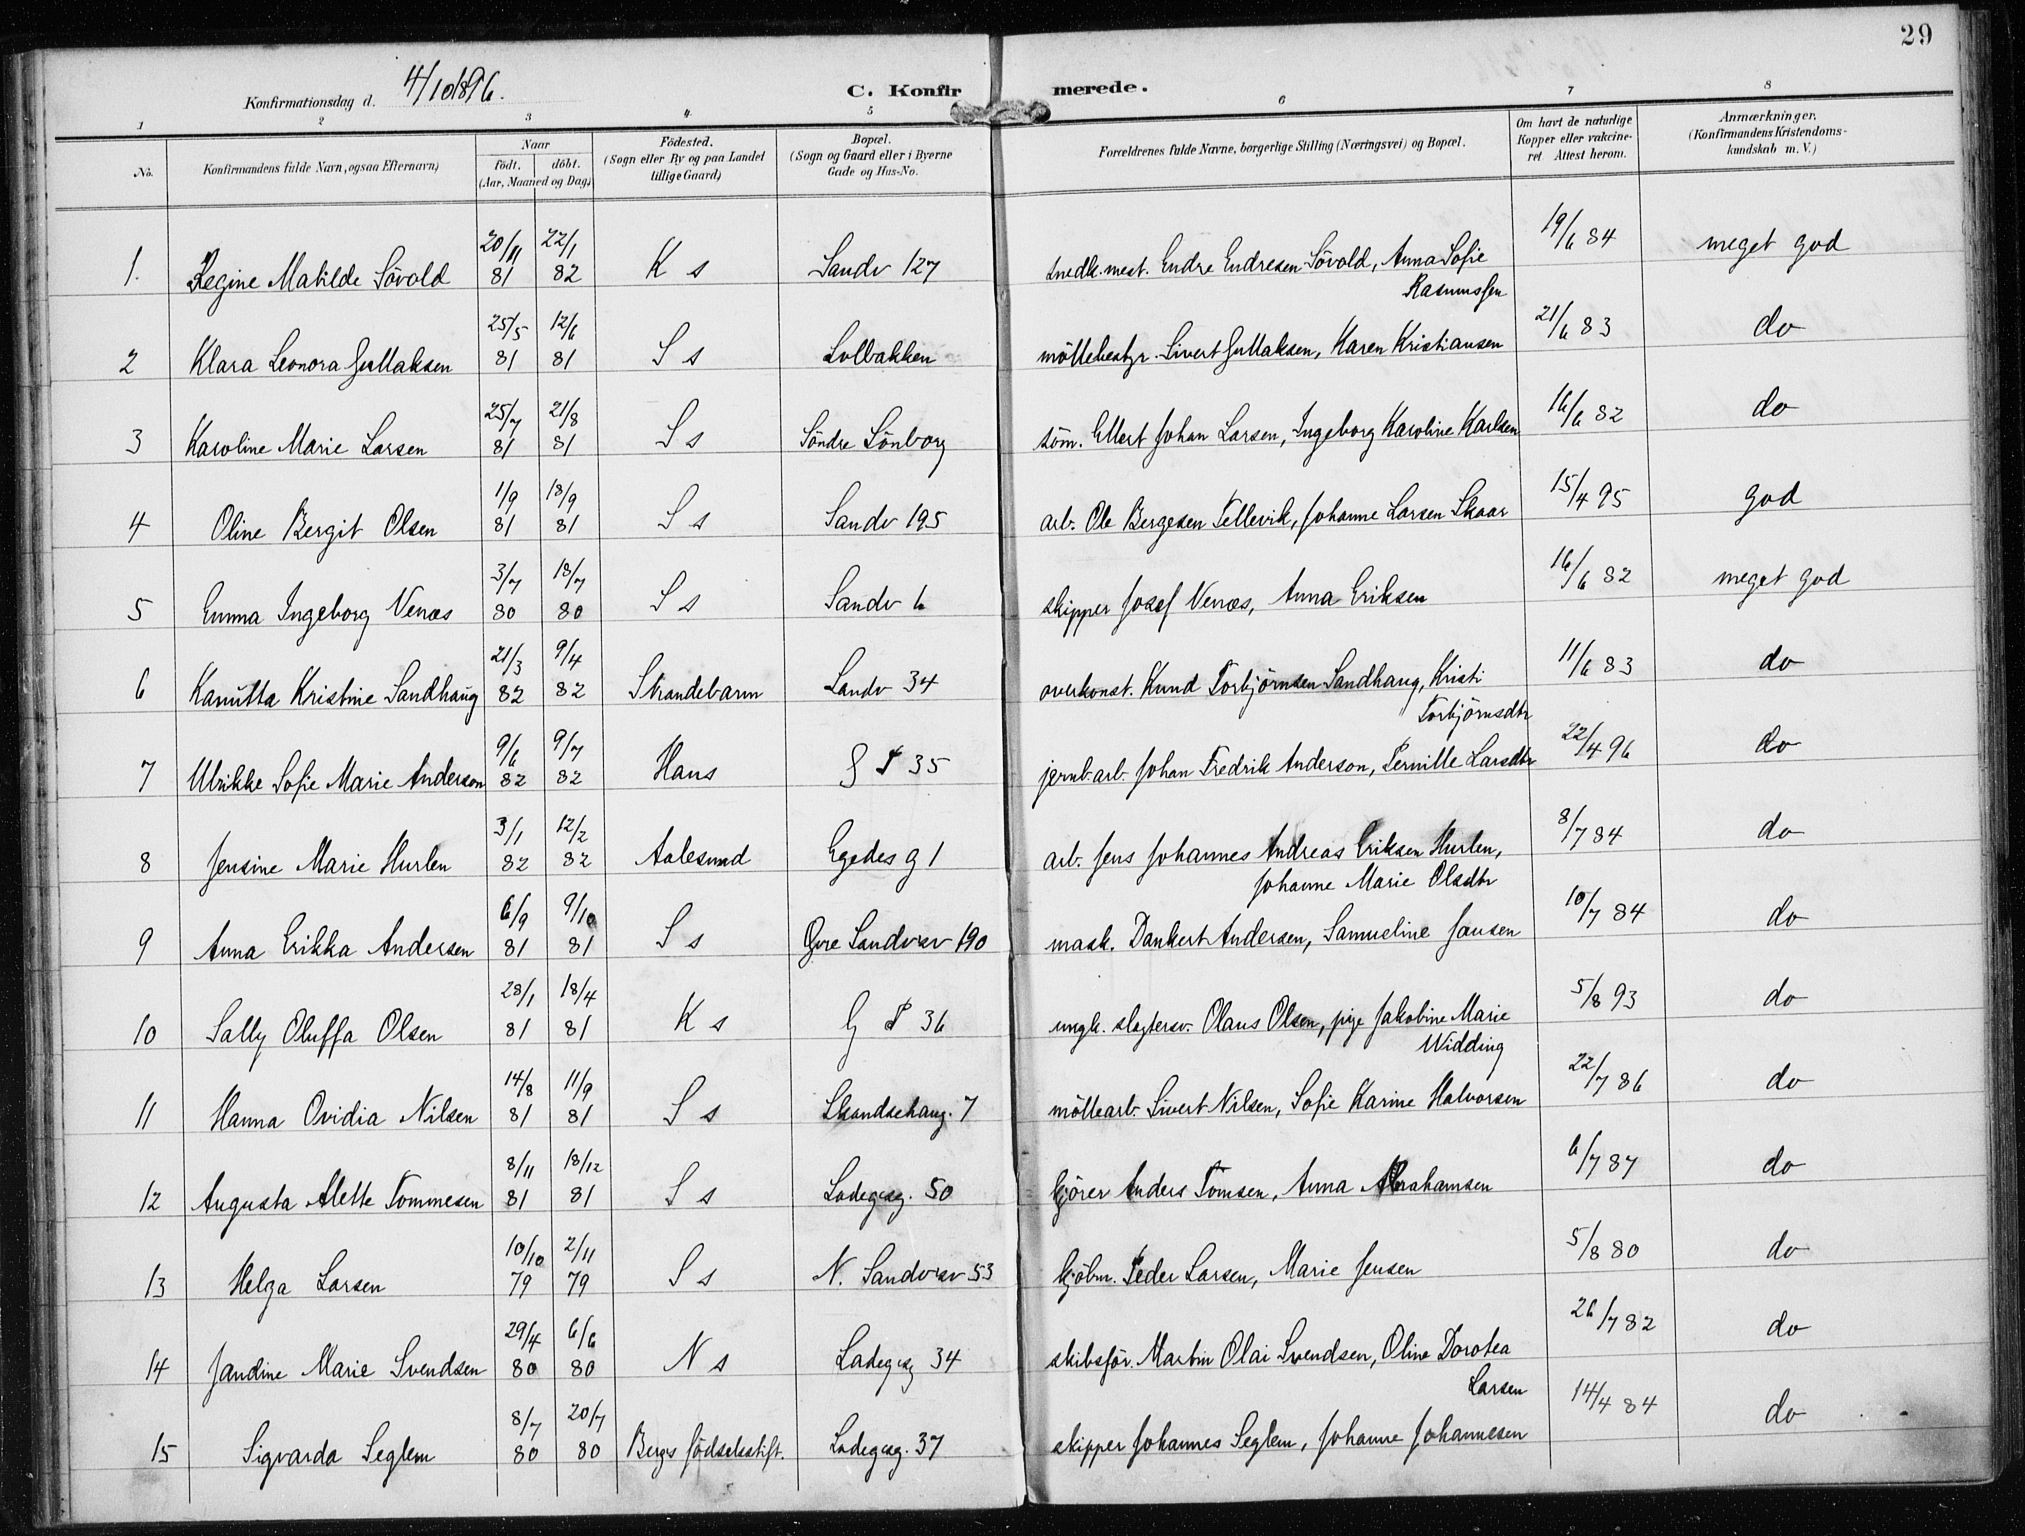 29
Konfirmationsdag d. 4/10 1896.
C. Konfirmerede.
1 2 3 4 5 6 7 8
No. Konfirmandens fulde Navn, ogsaa Efternavn) Naar Födt. döbt. (Aar, Maaned og Dag) Födested. (Sogn eller By og paa Landet tillige Gaard) Bopæl. (Sogn og Gaard eller i Byerne Gade og Hus-No. Forældrenes fulde Navne, borgerlige Stilling (Næringsvei) og Bopæl. Om havt de naturlige Kopper eller vakcineret Attest herom. Anmærkninger. (Konfirmandens Kristendomskundskab m. V.)
1. Regine Matilde Sövold 20/11 81 22/1 82 K s Sandv 127 snedk. mest. Endre Endresen Sövold, Anna Sofie Rasmussen 19/6 84 meget god
2 Klara Leonora Gullaksen 25/5 81 12/6 81 S s Solbakken möllebestyr. Sivert Gullaksen, Karen Kristiansen 21/6 83 do
3 Karoline Marie Larsen 25/7 81 21/8 81 S s Söndre Sönborg söm. Ellert Johan Larsen, Ingeborg Karoline Karlsen 16/6 82 do
4 Oline Bergit Olsen 1/9 81 18/9 81 S s Sandv 195 arb. Ole Bergesen Tellevik, Johanne Larsen Skaar 15/4 95 god
5 Emma Ingeborg Venæs 3/7 80 18/7 80 S s Sandv 6 skipper Josef Venæs, Anna Eriksen 16/6 82 meget god
6 Kanutta Kristine Sandhaug 21/3 82 9/4 82 Strandebarm Sandv 34 overkonst. Knud Torbjörnsen Sandhaug, Kristi Torbjörnsdtr 11/6 83 do
7 Ulrikke Sofie Marie Anderson 9/6 82 9/7 82 Haus G P 35 jernb.arb. Johan Fredrik Anderson, Pernille Larsdtr 22/4 96 do
8 Jensine Marie Hurlen 3/1 82 12/2 82 Aalesund Egedes g 1 arb. Jens Johannes Andreas Eriksen Hurlen, Johanne Marie Olsdtr 8/7 84 do
9 Anna Erikka Andersen 6/9 81 9/10 81 S s Övre Sandvsv 190 mask. Dankert Andersen, Samueline Jansen 10/7 84 do
10 Sally Oluffa Olsen 28/1 81 18/4 81 K s G P 36 ungk. slagtersv. Olaus Olsen, pige Jakobine Marie Widding 5/8 93 do
11 Hanna Ovidia Nilsen 14/8 81 11/9 81 S s Skandsehaug. 7 möllearb. Sivert Nilsen, Sofie Karine Halvorsen 22/7 86 do
12 Augusta Alette Tommesen 8/11 81 18/12 81 S s Ladegsg. 50 kjörer Anders Tomsen, Anna Abrahamsen 6/7 87 do
13 Helga Larsen 10/10 79 2/11 79 S s N. Sandvsv 53 kjöbm. Peder Larsen, Marie Jensen 5/8 80 do
14 Jandine Marie Svendsen 29/4 80 6/6 80 N s Ladegsg 34 skibsför. Martin Olai Svendsen, Oline Dorotea Larsen 26/7 82 do
15 Sigvarda Seglem 8/7 80 20/7 80 Bergs födselsstift. Ladegsg. 37 skipper Johannes Seglem, Johanne Johannesen 14/4 84 do